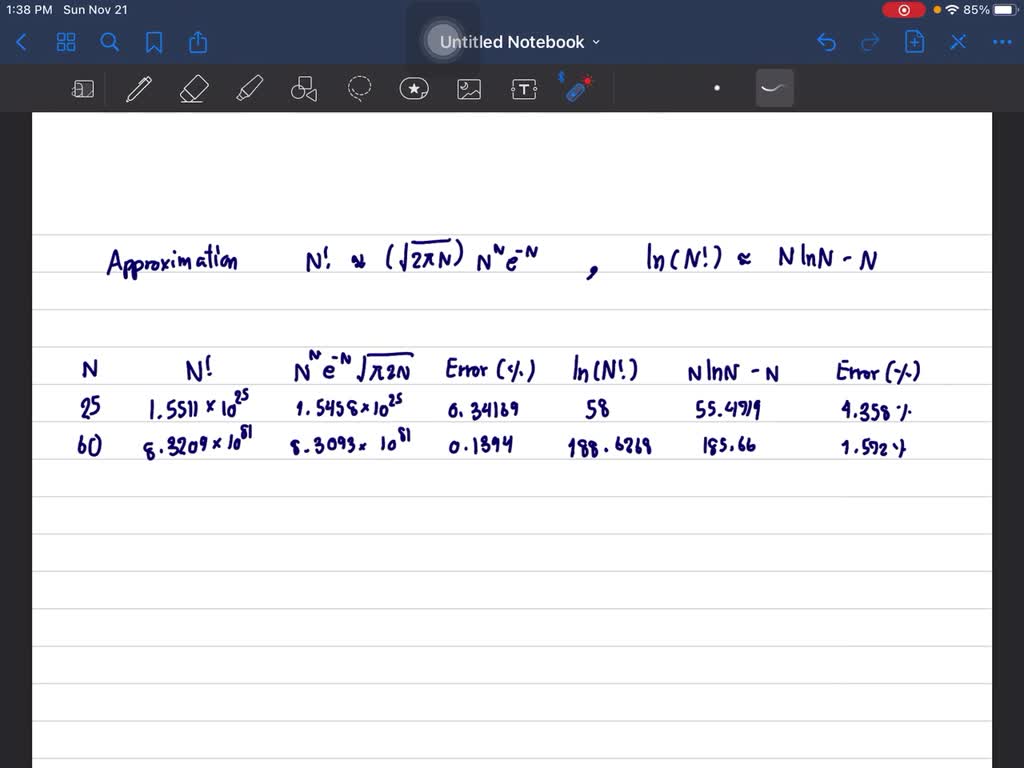 1:38 PM Sun Nov 21 85%
Untitled Notebook
T
Approximation N! ≈ (√2πN) N^N e^-N , ln(N!) ≈ N lnN - N
N N! N^N e^-N √π2N Error (%) ln(N!) N lnN - N Error (%)
25 1.5511 × 10^25 1.5458 × 10^25 0.34169 58 55.4719 4.358 %
60 8.3209 × 10^81 8.3093 × 10^81 0.1394 188.6268 185.66 1.572 %